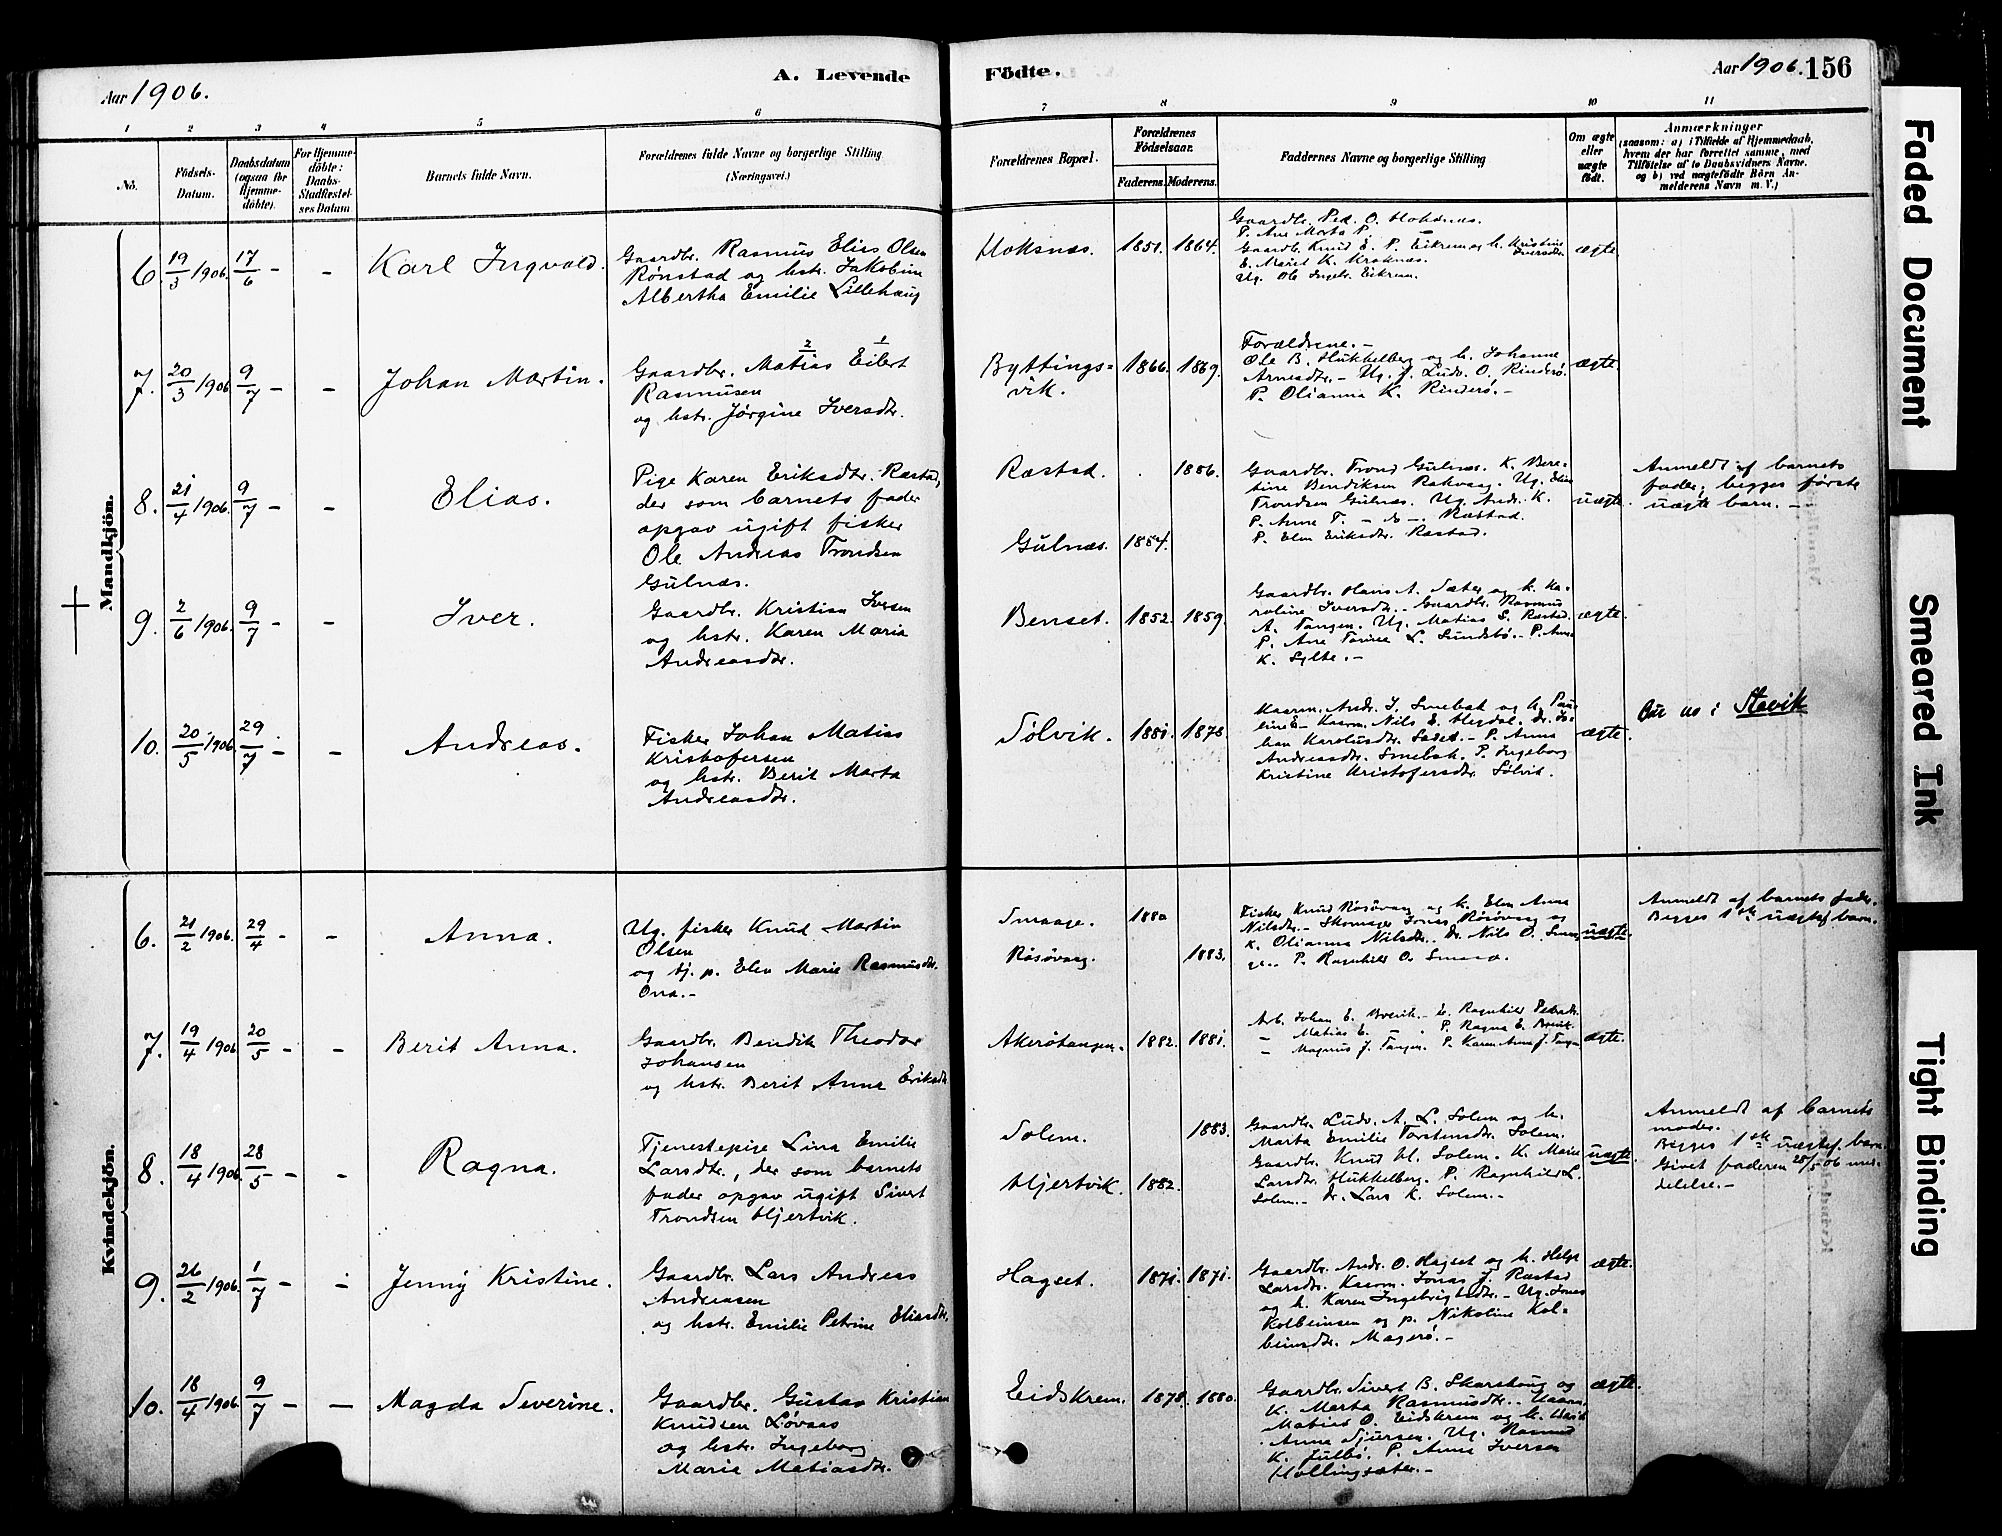 Aar 1906.
A. Levende
Födte.
Aar 1906. 156
1 2 3 4 5 6 7 8 9 10 11
No.
Födsels-
Datum.
Daabsdatum
(ogsaa for
Hjemme-
döbte).
For Hjemme-
döbte:
Daabs-
Stadfæstel-
ses Datum
Barnets fulde Navn.
Forældrenes fulde Navne og borgerlige Stilling
(Næringsvei.)
Forældrenes Bopæl.
Forældrenes
Födselsaar.
Faderens. Moderens.
Faddernes Navne og borgerlige Stilling
Om ægte
eller
uægte
födt.
Anmærkninger
(saasom: a) i Tilfælde af Hjemmedaab,
hvem der har forrettet samme, med
Tilföielse af to Daabsvidners Navne.
og b) ved uægtefödte Börn An-
melderens Navn m. V.)
Mandkjön.
6. 19/3 1906. 17/6 - - Karl Ingvald.
Gaardbr. Rasmus Elias Olsen
Rönstad og hstr. Jakobine
Albertha Emilie Lillehaug
Hoksnæs. 1851. 1864.
Gaardbr. Ped. O. Hoksnæs.
P. Ane Marta P. —
Gaardbr. Knud E. P. Eikrem og h. Kristine Iversdtr.
E. Marit K. Kroknæs.
Ug. Ole Ingebr. Eikrem.
ægte.
7. 20/3 1906 9/7 - - Johan Martin.
2 1
Gaardbr. Matias Eilert
Rasmusen
og hstr. Jørgine Iversdtr.
Byttings-
vik.
1866. 1869.
Forældrene. -
Ole B. Hukkelberg og h. Johanne
Arnesdtr. - Ug. J. Ludv. O. Rinderö.
P. Olianna K. Rinderö. -
ægte.
8. 21/4 1906. 9/7 - - Elias.
Pige Karen Eriksdtr. Ræstad,
der som barnets fader
opgav ugift fisker
Ole Andreas Trondsen
Gulnæs.
Ræstad. . 1886.
Gulnæs. 1884.
Gaardbr. Trond Gulnæs. K. Bere-
tine Bendiksen Rakvaag. Ug. Elias
Trondsen Gulnæs. Ug. Andr. K.
P. Anne T. - do -. Ræstad.
P. Elen Eriksdtr. Ræstad.
uægte.
Anmeldt af barnets
fader; begges förste
uægte barn. -
9. 2/6 1906. 9/7 - - Iver.
Gaardbr. Kristian Iversen
og hstr. Karen Maria
Andreasdtr.
Benset. 1852. 1859.
Gaardbr. Hans A. Sæter og h. Ka-
roline Iversdtr. - Gaardbr. Rasmus
A. Tangen. Ug. Matias S. Ræstad.
P. Ane Tarine L. Sundsbö. - P. Ane
K. Sylte. -
ægte.
10. 20/5 1906 29/7 - - Andreas.
Fisker Johan Matias
Kristofersen
og hstr. Berit Marta
Andreasdtr.
Sølvik. 1881. 1878.
Kaarm. Andr. I. Smebak og h. Pau-
line E - Kaarm. Nils E. Hegdal. Dr. Jo-
han Karolusdtr. - P. Anna
Andreasdtr. Smebak. P. Ingeborg
Kristine Kristofersdtr. Sølvik.
ægte.
Stavik
Kvindekjön.
6. 21/2 1906. 29/4 - - Anna.
Ug. fisker Knud Martin
Olsen
og tj. p. Elen Marie Rasmusdtr.
Ona. -
Smaage. 1880
Røsövaag. 1883.
Fisker Knud Røsövaag og h. Elen Anna
Nilsdtr. - Skomager Jonas Røsövaag og
k. Olianna Nilsdtr. Dr. Nils O. Smaa-
ge. - P. Ragnhild O. Smaage.
uægte.
Anmeldt af barnets fader.
Begges 1ste uægtef. barn.
7. 19/4 1906 20/5 - - Berit Anna.
Gaardbr. Bendik Theodor
Johansen
og hstr. Berit Anna Eriksdtr.
Akerötangen. 1882. 1881.
Arb. Johan E. Breivik. - h. Ragnhild Pedersdtr.
- Matias E. — . P. Ragna E. Breivik.
- Magnus J. Tangen. P. Karen Anne J. Tangen
ægte.
8. 18/4 1906. 28/5 - - Ragna.
Tjenestepige Lina Emilie
Larsdtr., der som barnets
fader opgav ugift Sivert
Trondsen Hjertvik.
Solem. 1883.
Hjertvik. 1882.
Gaardbr. Ludv. A. L. Solem og h.
Marta Emilie Torstensdtr. Solem.
Gaardbr. Knud M. Solem. K. Marie
Larsdtr. Hukkelberg. P. Ragnhild L.
Solem. - Dr. Lars K. Solem. -
uægte.
Anmeldt af barnets
moder.
Begges 1ste uægtef. barn.
Givet faderen 28/5 06 med-
delelse. -
9. 26/2 1906. 1/7 - - Jenny Kristine.
Gaardbr. Lars Andreas
Andreasen
og hstr. Emilie Petrine Eliasdtr.
Hagset. 1871. 1871.
Gaardbr. Andr. O. Hagset og h. Helga
Larsdtr. Kaarm. Jonas J. Ræstad
og h. Karen Ingebrigtsdtr. - Ug. Jonas
Kolbeinsen og p. Nikoline Kol-
beinsdtr. Magerö. -
ægte.
10. 18/4 1906. 9/7 - - Magda Severine.
Gaardbr. Gustav Kristian
Knudsen Løvaas
og hstr. Ingeborg
Marie Matiasdtr.
Eidskrem. 1878. 1880.
Gaardbr. Sivert B. Skarshaug og
K. Marta Rasmusdtr. - Kaarm.
Matias O. Eidskrem og h. Marit
Anne Sjursen. Ug. Rasmus
K. Julbö. P. Anne Iversen
Hollingsæter. -
ægte.
Faded Document
Smeared Ink
Tight Binding